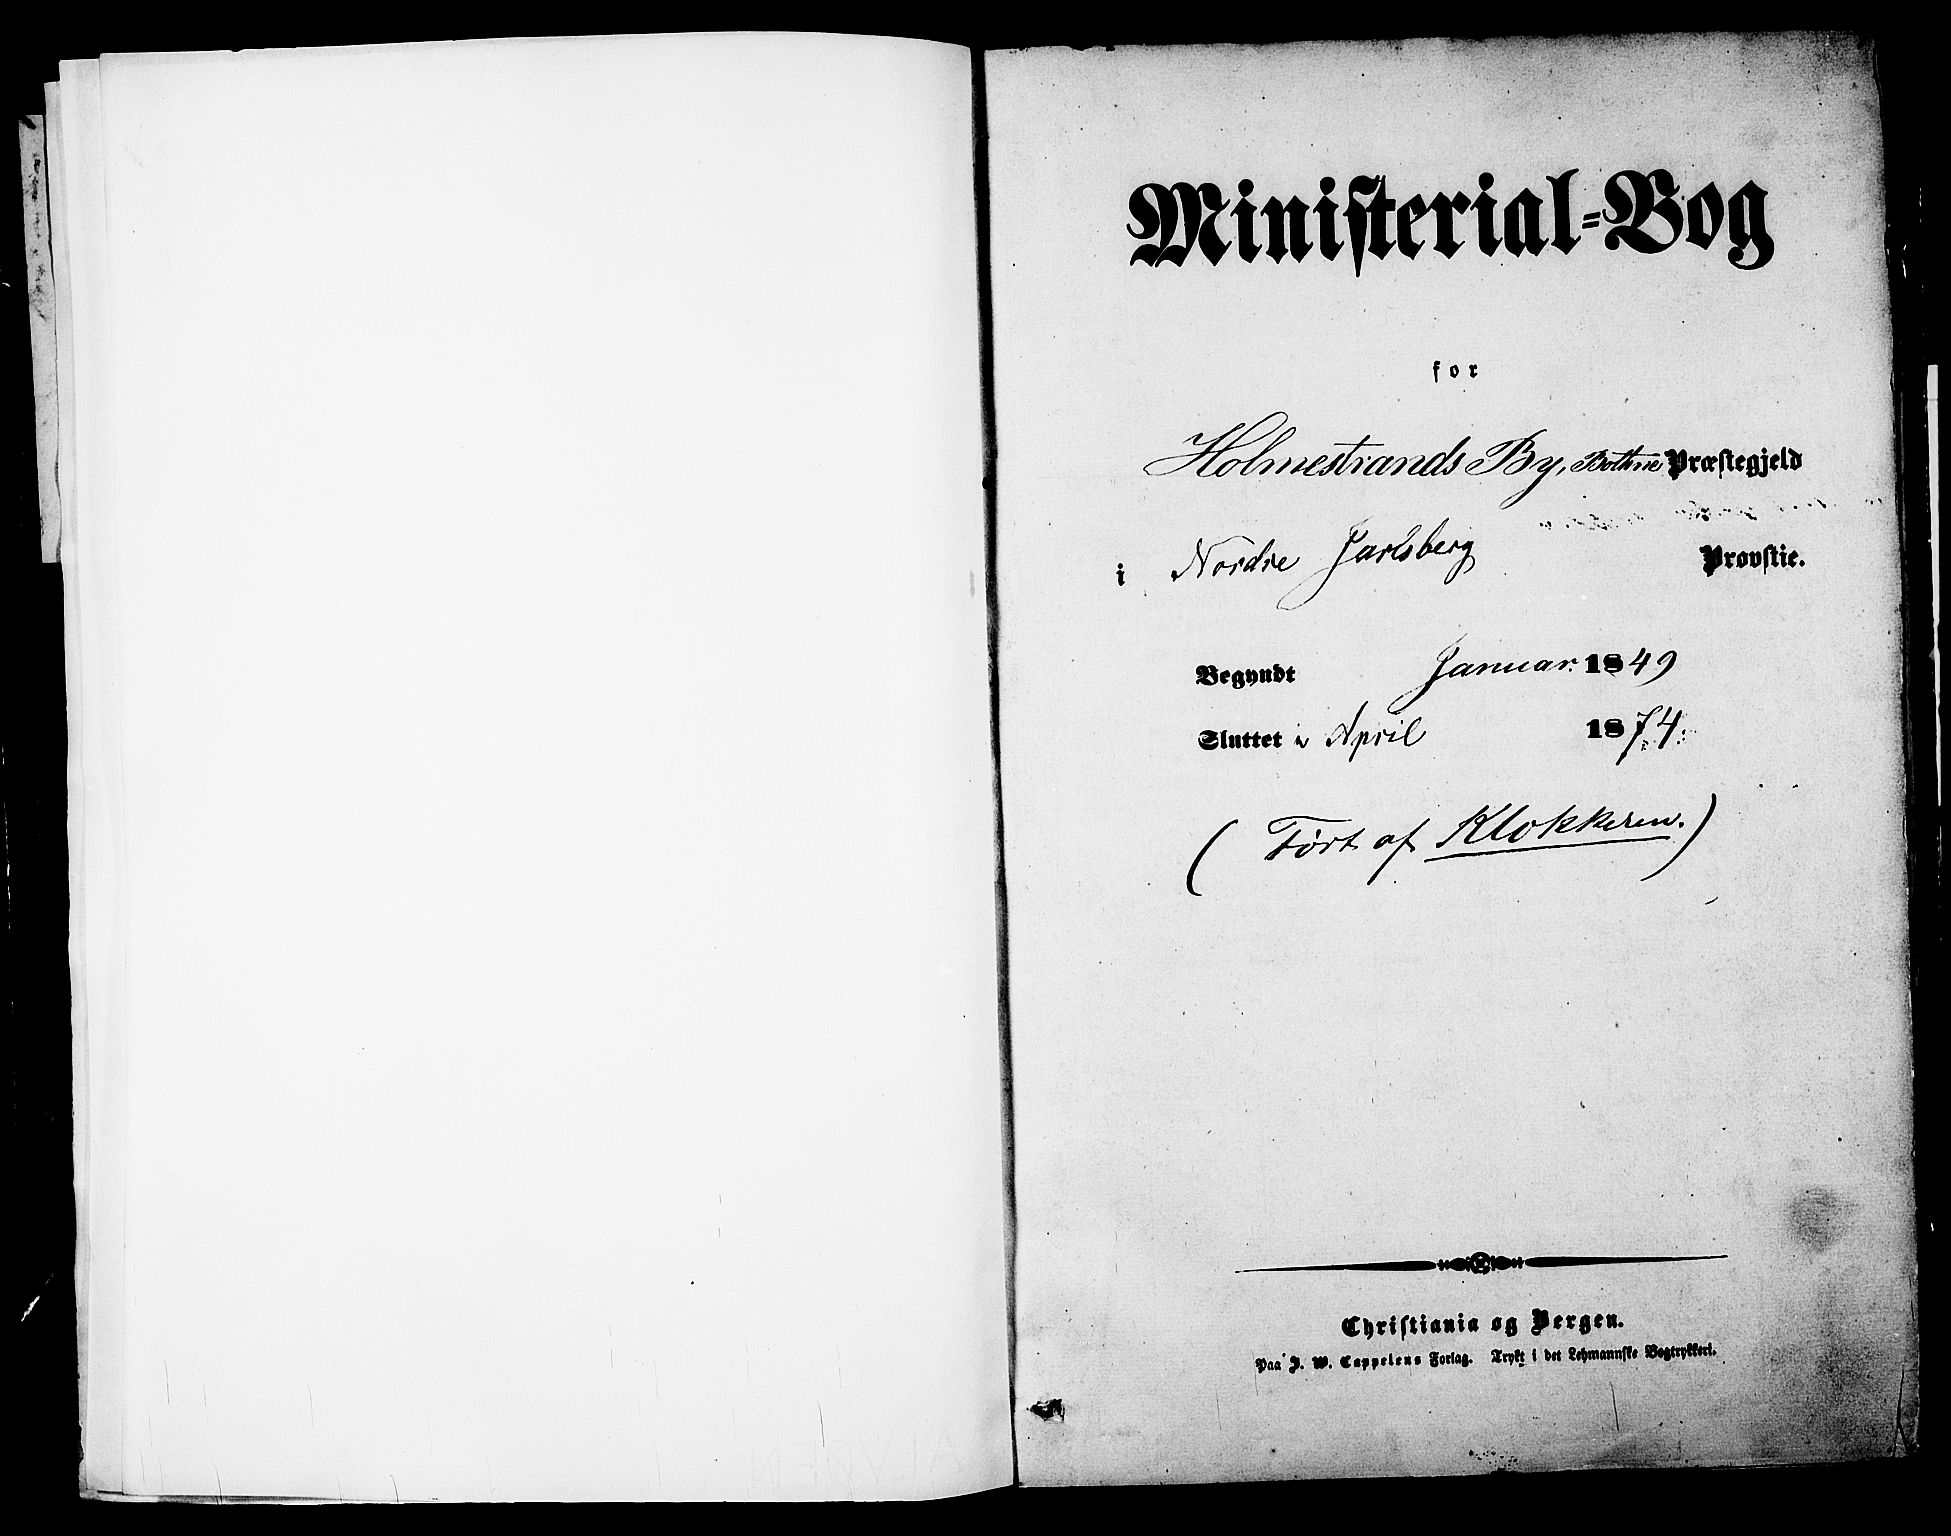 Ministerial=Bog
for
Holmestrands By, Bothne Præstegjeld
i Nordre Jarlsberg Provstie.
Begyndt Januar 1849
Sluttet i April 1874.
( Ført af Klokkeren.)
Christiania og Bergen.
Paa J. W. Cappelens Forlag. Trykt i det Lehmannske Bogtrykkeri.